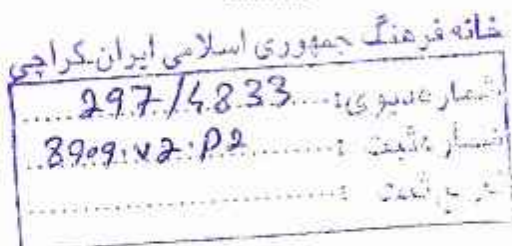 خانه فرهنگ جمهوری اسلامی ایران کراچی
شمارہ دیوی: 297/4833
شمارہ ثبت: 8909:v2:P2